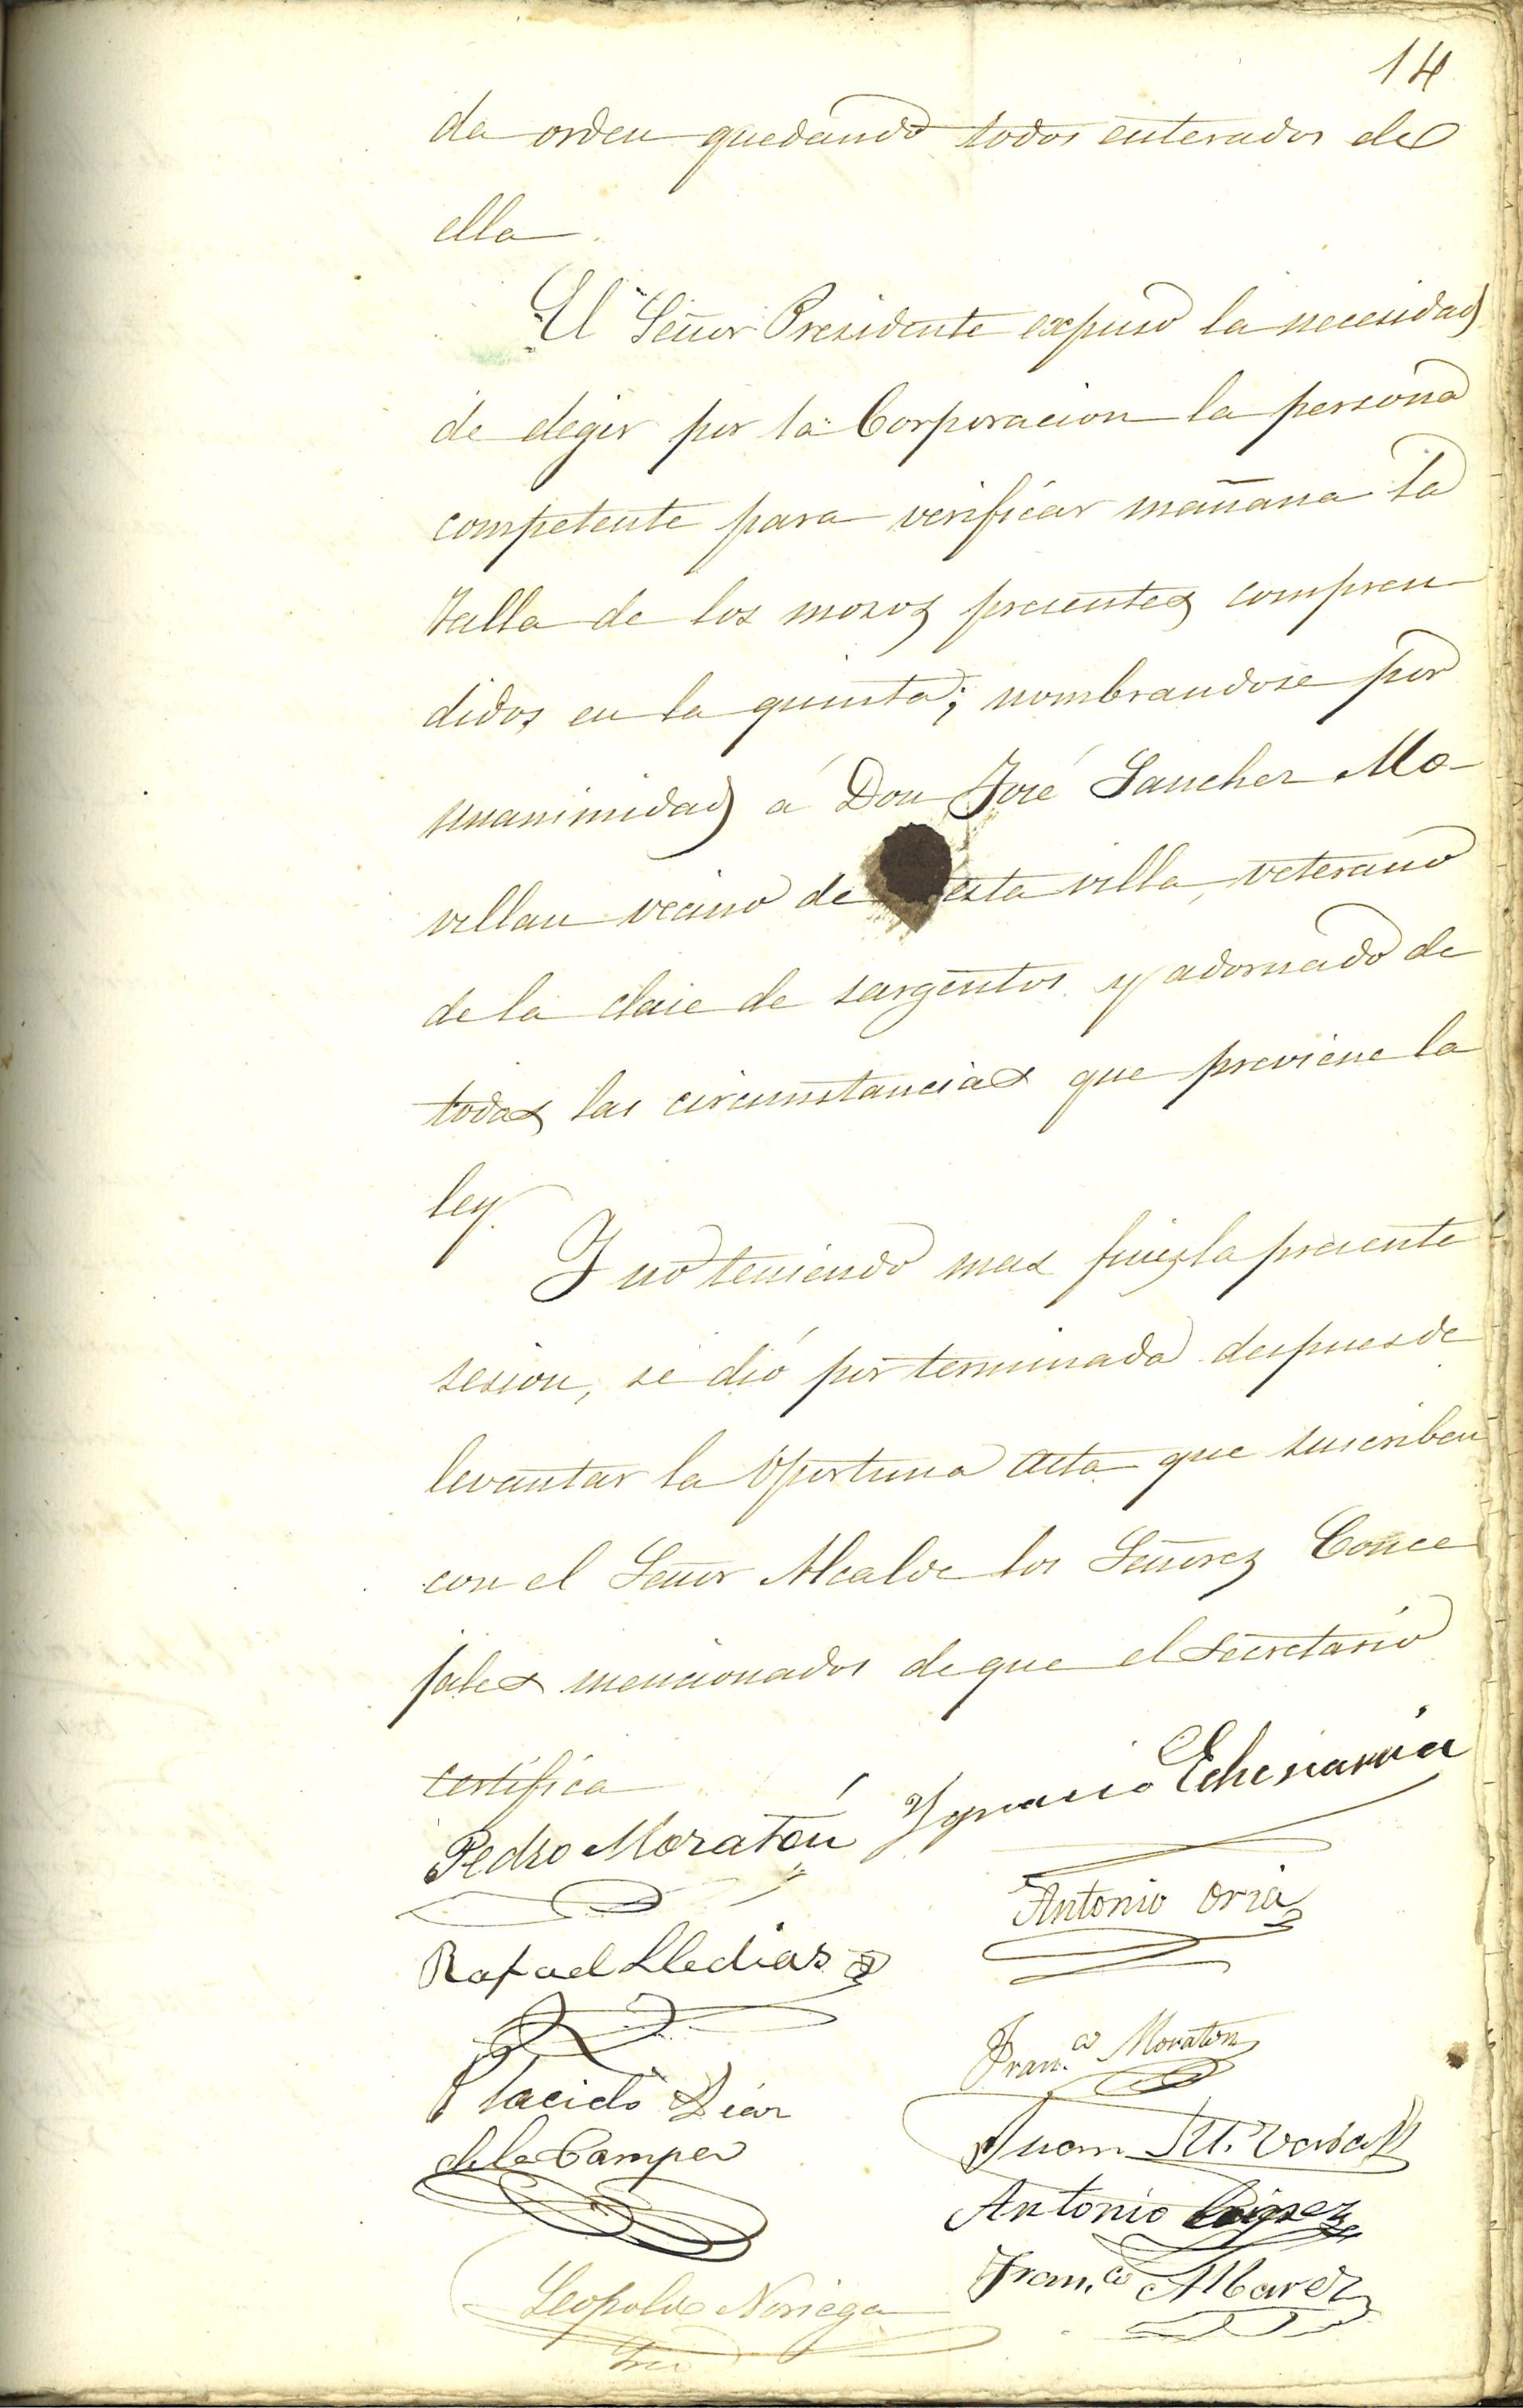 14
da orden quedando todos enterados de
ella.
El Señor Presidente expuso la necesidad
de elegir por la Corporacion la persona
competente para verificar mañana la
talla de los mozos presentes compren
didos en la quinta; nombrandose por
unanimidad á Don José Sanchez Mo-
villan vecino de esta villa, veterano
de la clase de sargentos y adornado de
todas las circunstancias que previene la
ley.
Y no teniendo mas fines la presente
sesion, se dió por terminada despues de
levantar la oportuna acta que suscriben
con el Señor Alcalde los Señores Conce
jales mencionados de que el Secretario
certifica
Pedro Moratón Ygnacio Echevarria
Antonio Oria
Rafael Lledias
Fran.co Moraton
Placido Diaz
de la Campa
Juan M.
Antonio Lopez
Fran.co Albarez
Leopoldo Noriega
Srio